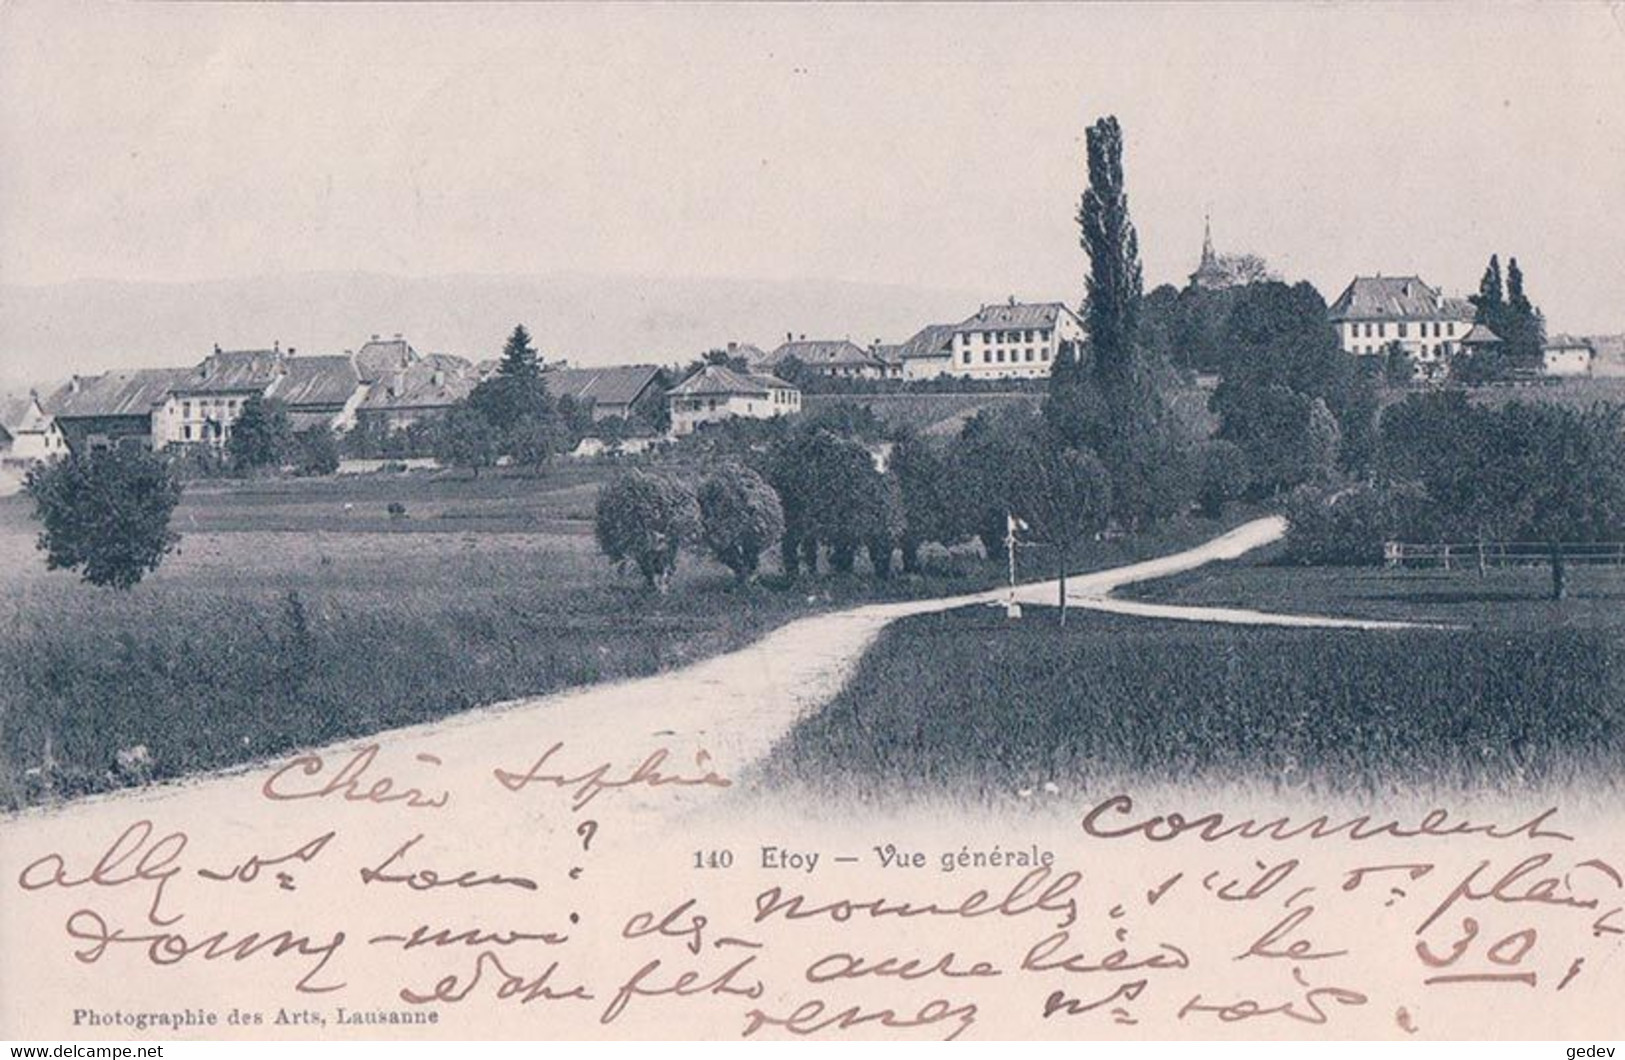 Chère Sophie
comment
allez-vs tous ?
140 Etoy — Vue générale
Donnez-moi des nouvelles, s'il vs plait,
Notre fête aura lieu le 30 ;
venez ns voir.
Photographie des Arts, Lausanne
https://www.delcampe.net
gedev